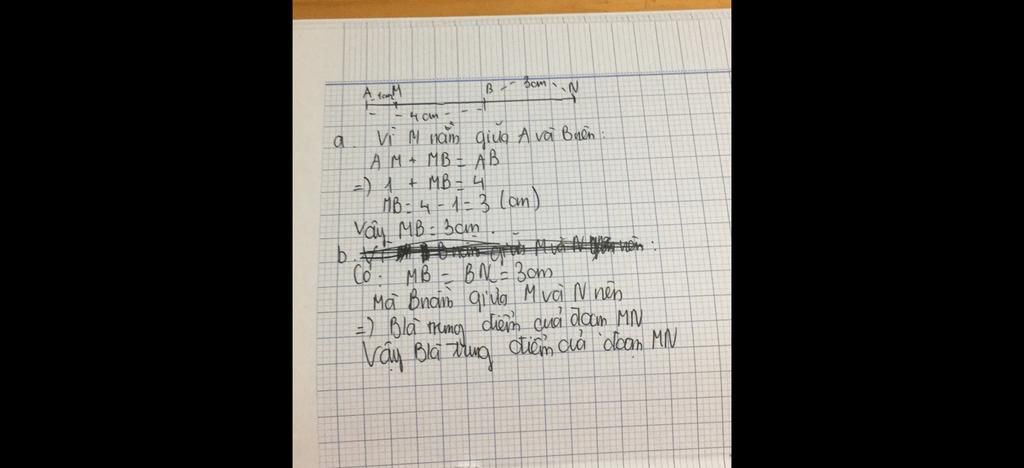 A 1cm M B 3cm N
4cm
a. Vì M nằm giữa A và B nên:
AM + MB = AB
=) 1 + MB = 4
MB = 4 - 1 = 3 (cm)
Vậy MB = 3cm.
b. Vì B nằm giữa M và N nên:
Có: MB = BN = 3cm
Mà B nằm giữa M và N nên
=) B là trung điểm của đoạn MN
Vậy B là trung điểm của đoạn MN